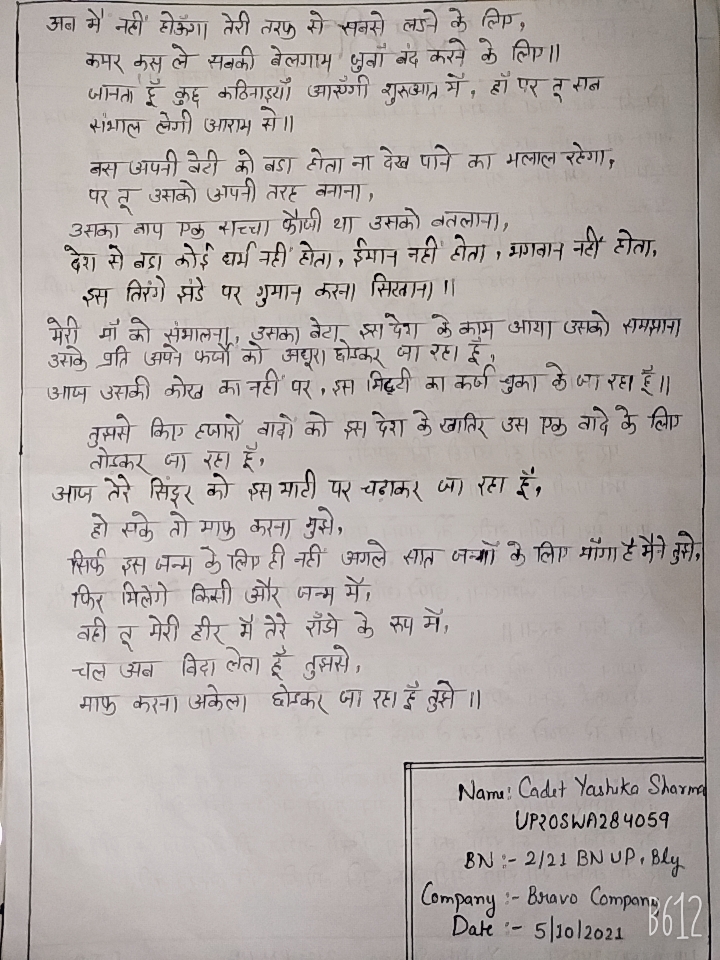 अब मैं नहीं होऊँगा तेरी तरफ से सबसे लडने के लिए,
कमर कस ले सबकी बेलगाम जुबाँ बंद करने के लिए॥
जानता हूँ कुछ कठिनाइयाँ आएँगी शुरुआत में, हाँ पर तू सब
संभाल लेगी आराम से॥
बस अपनी बेटी को बडा होता ना देख पाने का मलाल रहेगा,
पर तू उसको अपनी तरह बनाना,
उसका बाप एक सच्चा फौजी था उसको बतलाना,
देश से बडा कोई धर्म नहीं होता, ईमान नहीं होता, भगवान नहीं होता,
इस तिरंगे झंडे पर गुमान करना सिखाना॥
मेरी माँ को संभालना, उसका बेटा इस देश के काम आया उसको समझाना
उसके प्रति अपने फर्जो को अधूरा छोडकर जा रहा हूँ,
आज उसकी कोख का नहीं पर, इस मिट्टी का कर्ज चुका के जा रहा हूँ॥
तुझसे किए हजारों वादों को इस देश के खातिर उस एक वादे के लिए
तोडकर जा रहा हूँ,
आज तेरे सिंदूर को इस माटी पर चढाकर जा रहा हूँ,
हो सके तो माफ करना मुझे,
सिर्फ इस जन्म के लिए ही नहीं अगले सात जन्मों के लिए माँगा है मैंने तुझे,
फिर मिलेंगे किसी और जन्म में,
वही तू मेरी हीर मैं तेरे राँझे के रूप में,
चल अब विदा लेता हूँ तुझसे,
माफ करना अकेला छोडकर जा रहा हूँ तुझे॥
Name: Cadet Yashika Sharma
UP20SWA284059
BN :- 2/21 BN UP, Bly
Company :- Bravo Company
Date :- 5/10/2021
B612